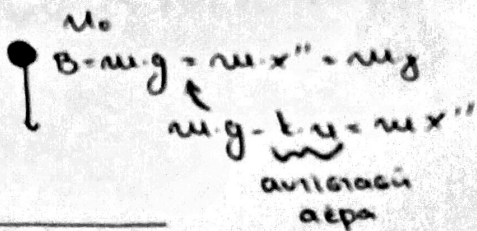 u₀
B = m·g = m·x'' = mγ
m·g - k·u = mx''
αντίσταση
αέρα